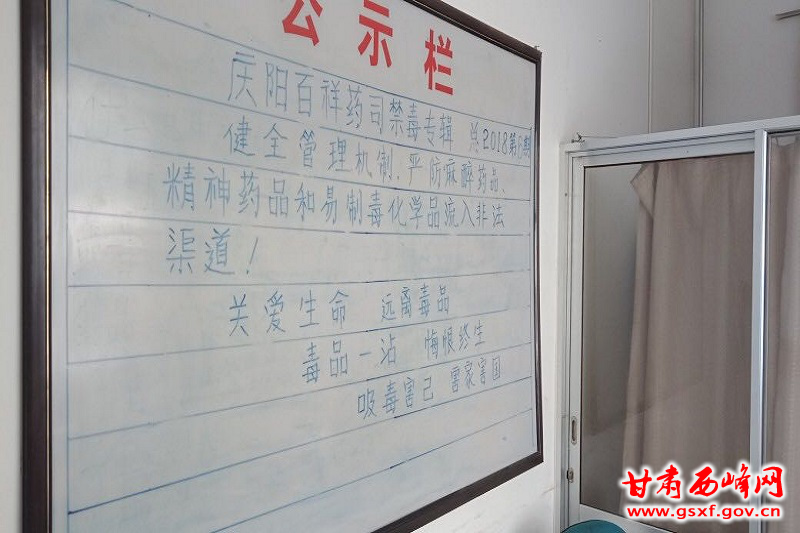 公示栏
庆阳百祥药司禁毒专辑 总2018第6期
健全管理机制.严防麻醉药品、
精神药品和易制毒化学品流入非法
渠道!
关爱生命 远离毒品
毒品一沾 悔恨终生
吸毒害己 害家害国
甘肃西峰网
www.gsxf.gov.cn